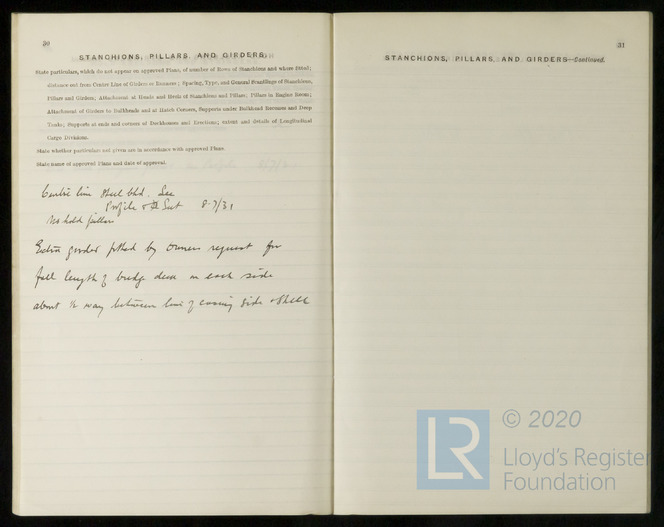 30
STANCHIONS, PILLARS, AND GIRDERS.
State particulars, which do not appear on approved Plans, of number of Rows of Stanchions and where fitted;
distance out from Centre Line of Girders or Runners; Spacing, Type, and General Scantlings of Stanchions,
Pillars and Girders; Attachment at Heads and Heels of Stanchions and Pillars; Pillars in Engine Room;
Attachment of Girders to Bulkheads and at Hatch Corners, Supports under Bulkhead Recesses and Deep
Tanks; Supports at ends and corners of Deckhouses and Erections; extent and details of Longitudinal
Cargo Divisions.
State whether particulars not given are in accordance with approved Plans.
State name of approved Plans and date of approval.
Centre line steel bhd. See
Profile & Sect 8/7/31
No hold pillars
Extra girder fitted by Owners request for
full length of bridge deck on each side
about ½ way between line of casing side & Shell
31
STANCHIONS, PILLARS, AND GIRDERS—Continued.
LR
© 2020
Lloyd's Register
Foundation